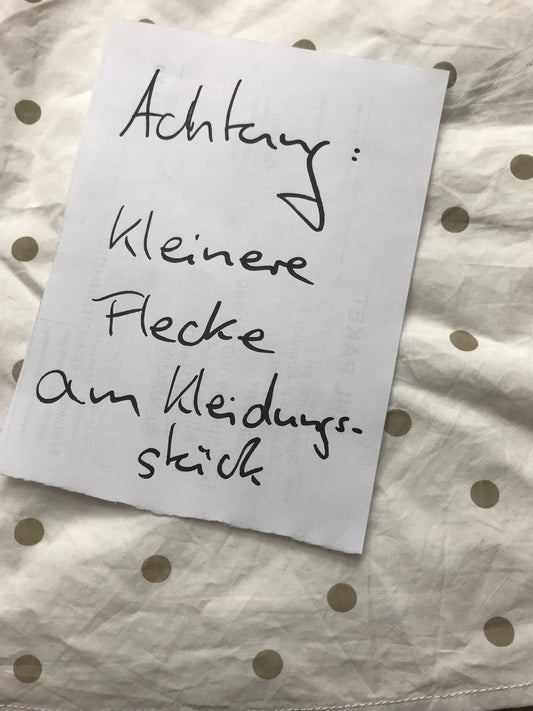 Achtung:
Kleinere
Flecke
am Kleidungs-
stück